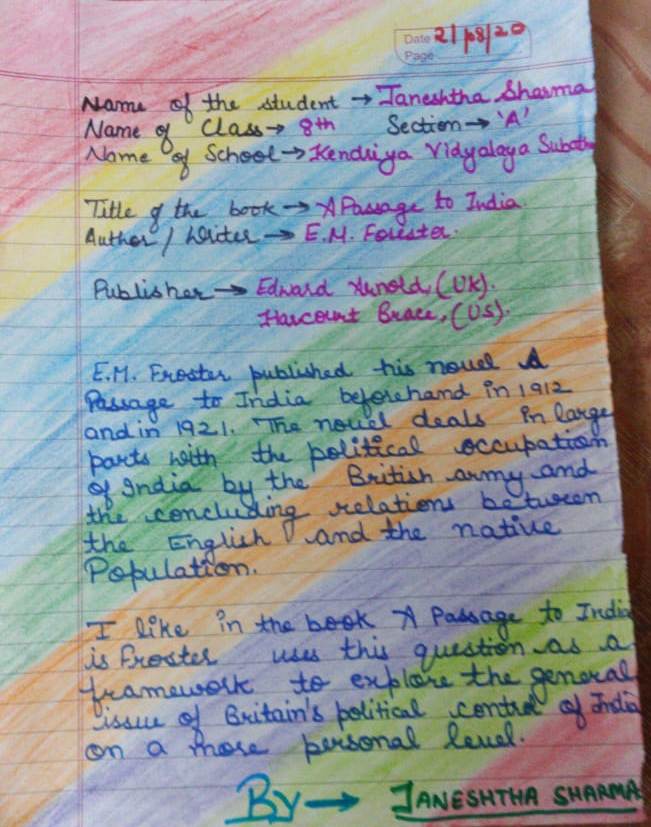 Date 21/08/20
Page
Name of the student → Janeshtha Sharma
Name of Class → 8th Section → 'A'
Name of School → Kendriya Vidyalaya
Title of the book → A Passage to India
Author / Writer → E.M. Forester.
Publisher → Edward Arnold, (UK).
Harcourt Brace, (US).
E.M. Froster published this novel A
Passage to India beforehand in 1912
and in 1921. The novel deals in large
parts with the political occupation
of India by the British army and
the concluding relations between
the English and the native
Population.
I like in the book A Passage to India
is Froster uses this question as a
framework to explore the general
issue of Britain's political control of India
on a more personal level.
By → JANESHTHA SHARMA